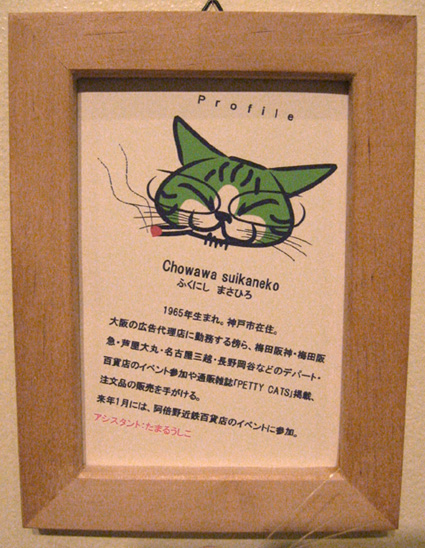 Profile
Chowawa suikaneko
ふくにし まさひろ
1965年生まれ。神戸市在住。
大阪の広告代理店に勤務する傍ら、梅田阪神・梅田阪
急・芦屋大丸・名古屋三越・長野岡谷などのデパート・
百貨店のイベント参加や通販雑誌「PETTY CATS」掲載、
注文品の販売を手がける。
来年1月には、阿倍野近鉄百貨店のイベントに参加。
アシスタント:たまるうしこ